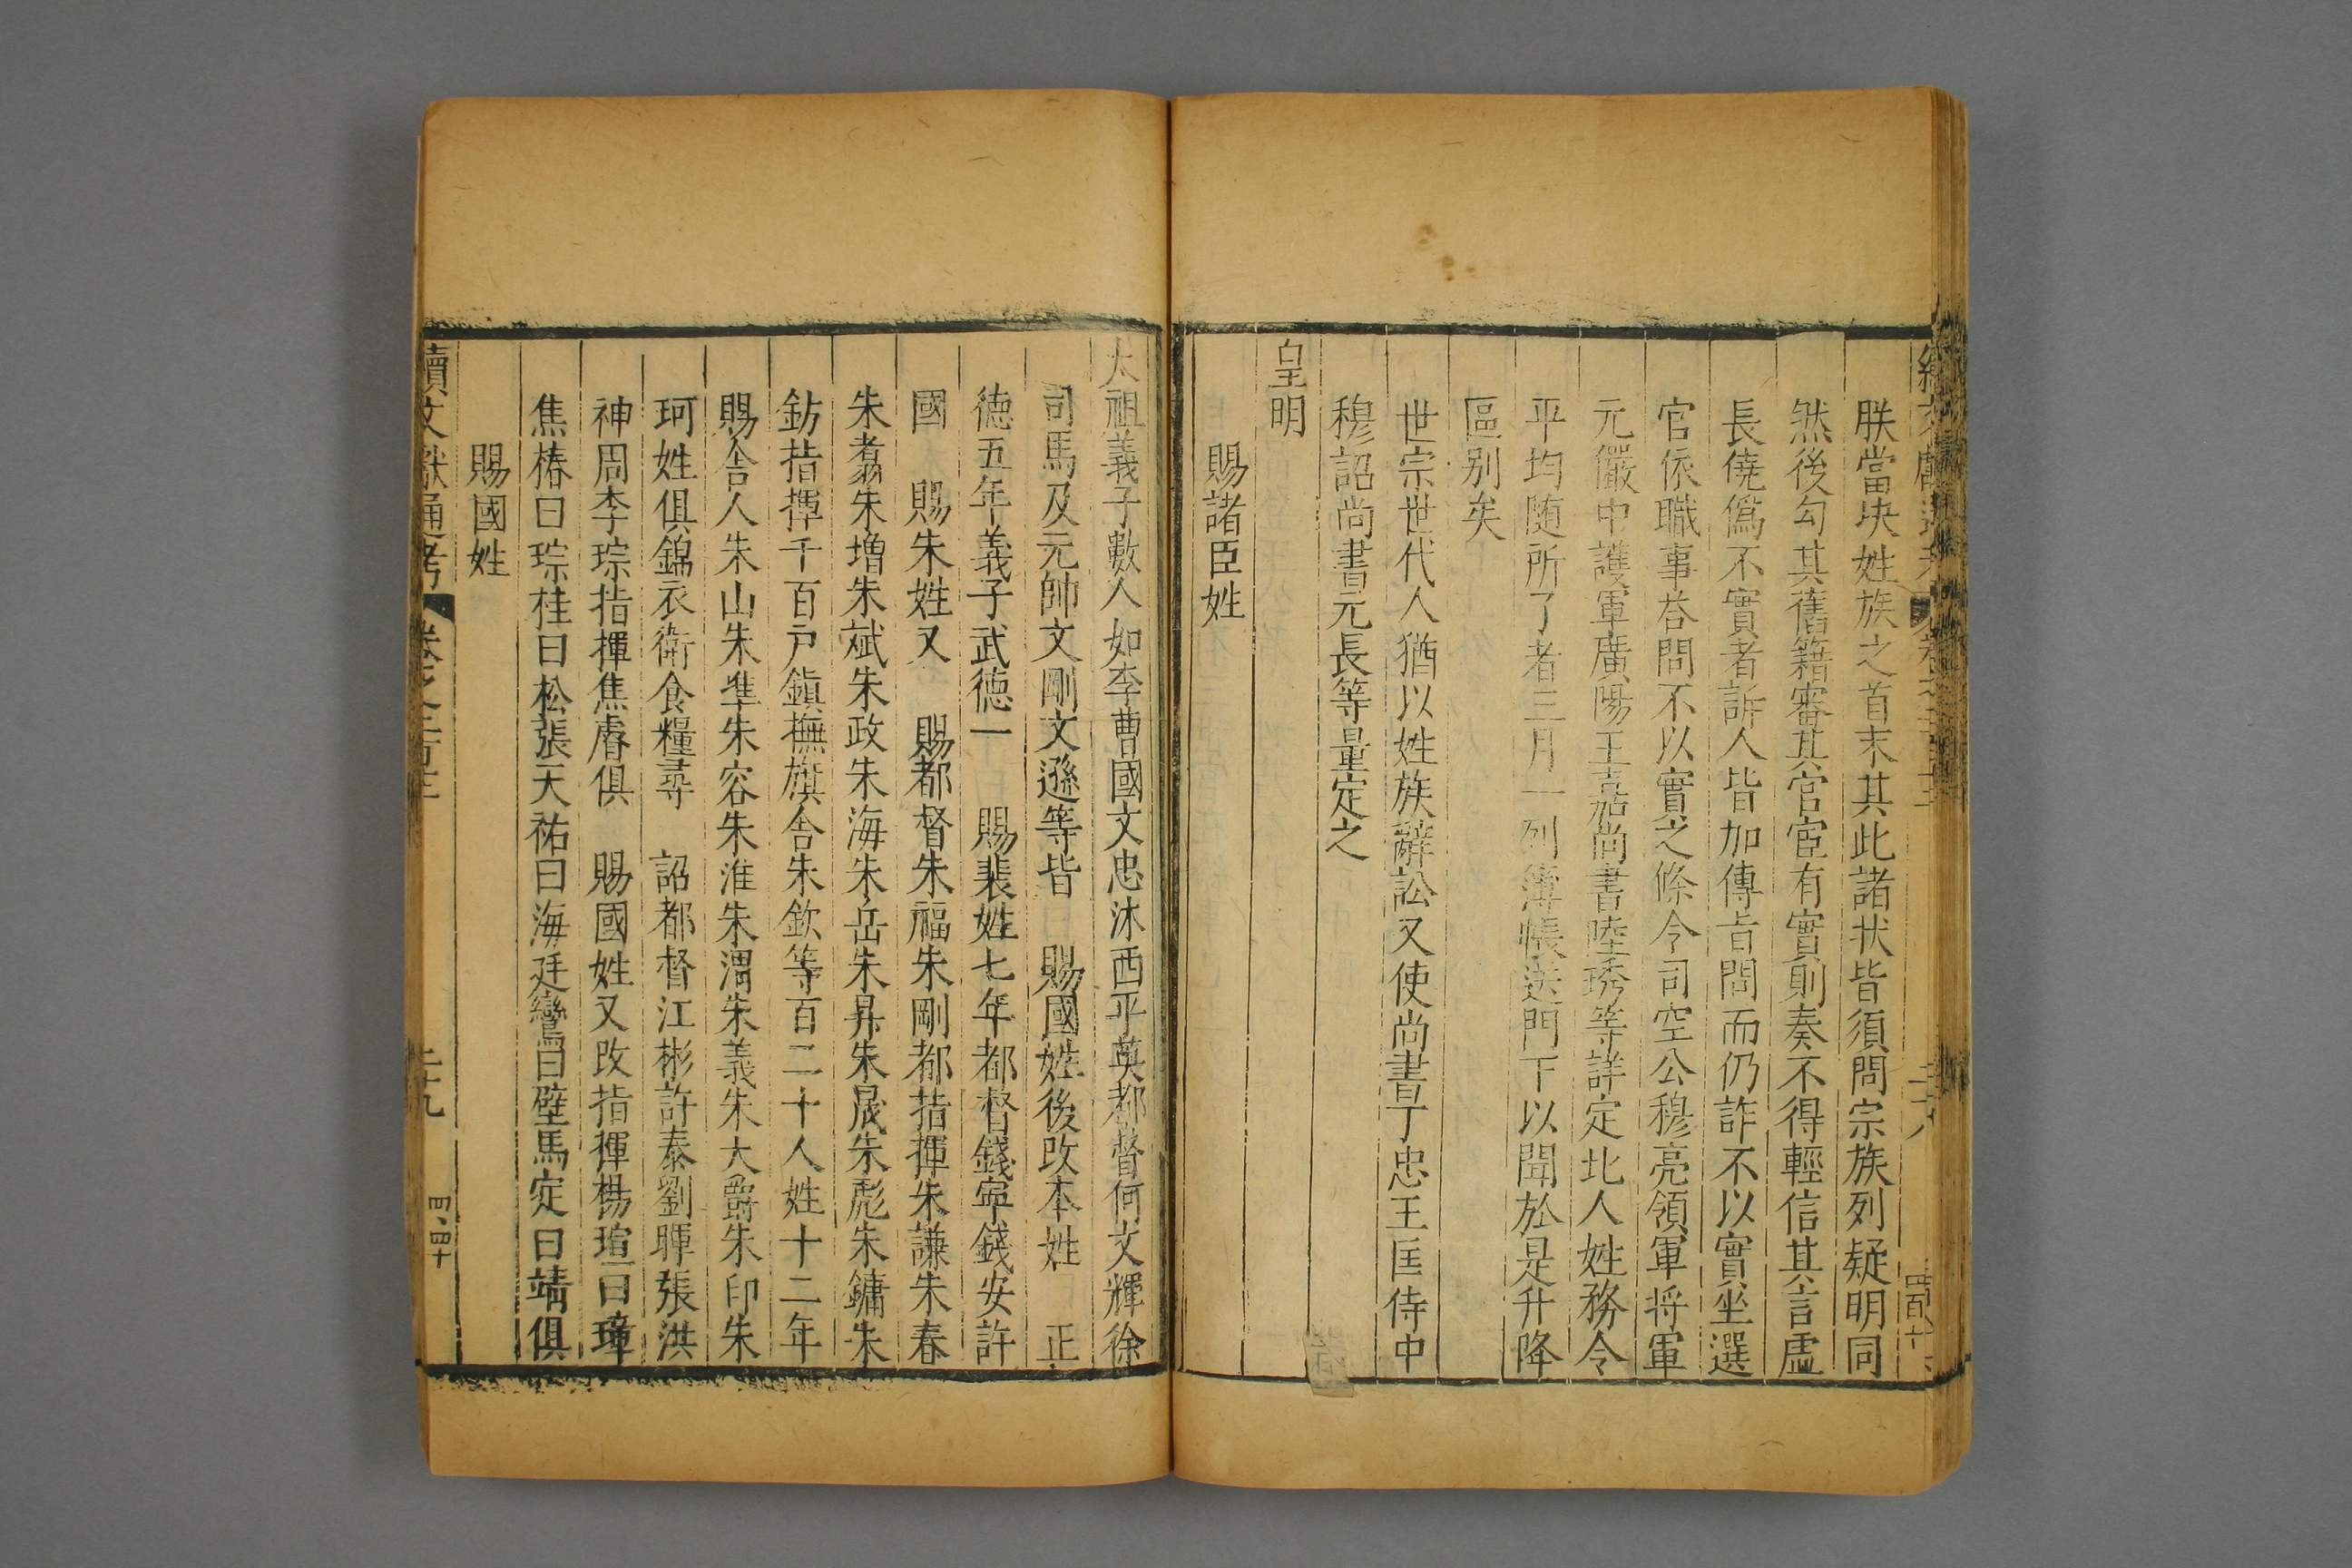 朕當決姓族之首末其此諸狀皆須問宗族列疑明同
然後勾其舊籍審其官宦有實則奏不得輕信其言虛
長僥僞不實者訴人皆加傳旨問而仍詐不以實坐選
官依職事荅問不以實之條令司空公穆亮領軍將軍
元儼中護軍廣陽王嘉尚書陸琇等詳定北人姓務令
平均随所了者三月一列簿帳送門下以聞於是升降
區别矣
世宗世代人猶以姓族辭訟又使尚書于忠王匡侍中
穆詔尚書元長等量定之
皇明
賜諸臣姓
太祖義子數人如李曹國文忠沐西平英都督何文輝徐
司馬及元帥文剛文遜等皆 賜國姓後改本姓 正
德五年義子武德一 賜裴姓七年都督錢寧錢安許
國 賜朱姓又 賜都督朱福朱剛都指揮朱謙朱春
朱翥朱增朱斌朱政朱海朱岳朱昇朱晟朱彪朱鏞朱
鈁指揮千百戶鎭撫旗舍朱欽等百二十人姓十二年
賜舍人朱山朱準朱容朱淮朱渭朱義朱大爵朱印朱
珂姓俱錦衣衛食糧尋 詔都督江彬許泰劉暉張洪
神周李琮指揮焦㬜俱 賜國姓又改指揮楊瑄曰璋
焦椿曰琮桂曰松張天祐曰海廷鸞曰壁馬定曰靖俱
賜國姓
續文獻通考 卷之二百三 二十九 四四十